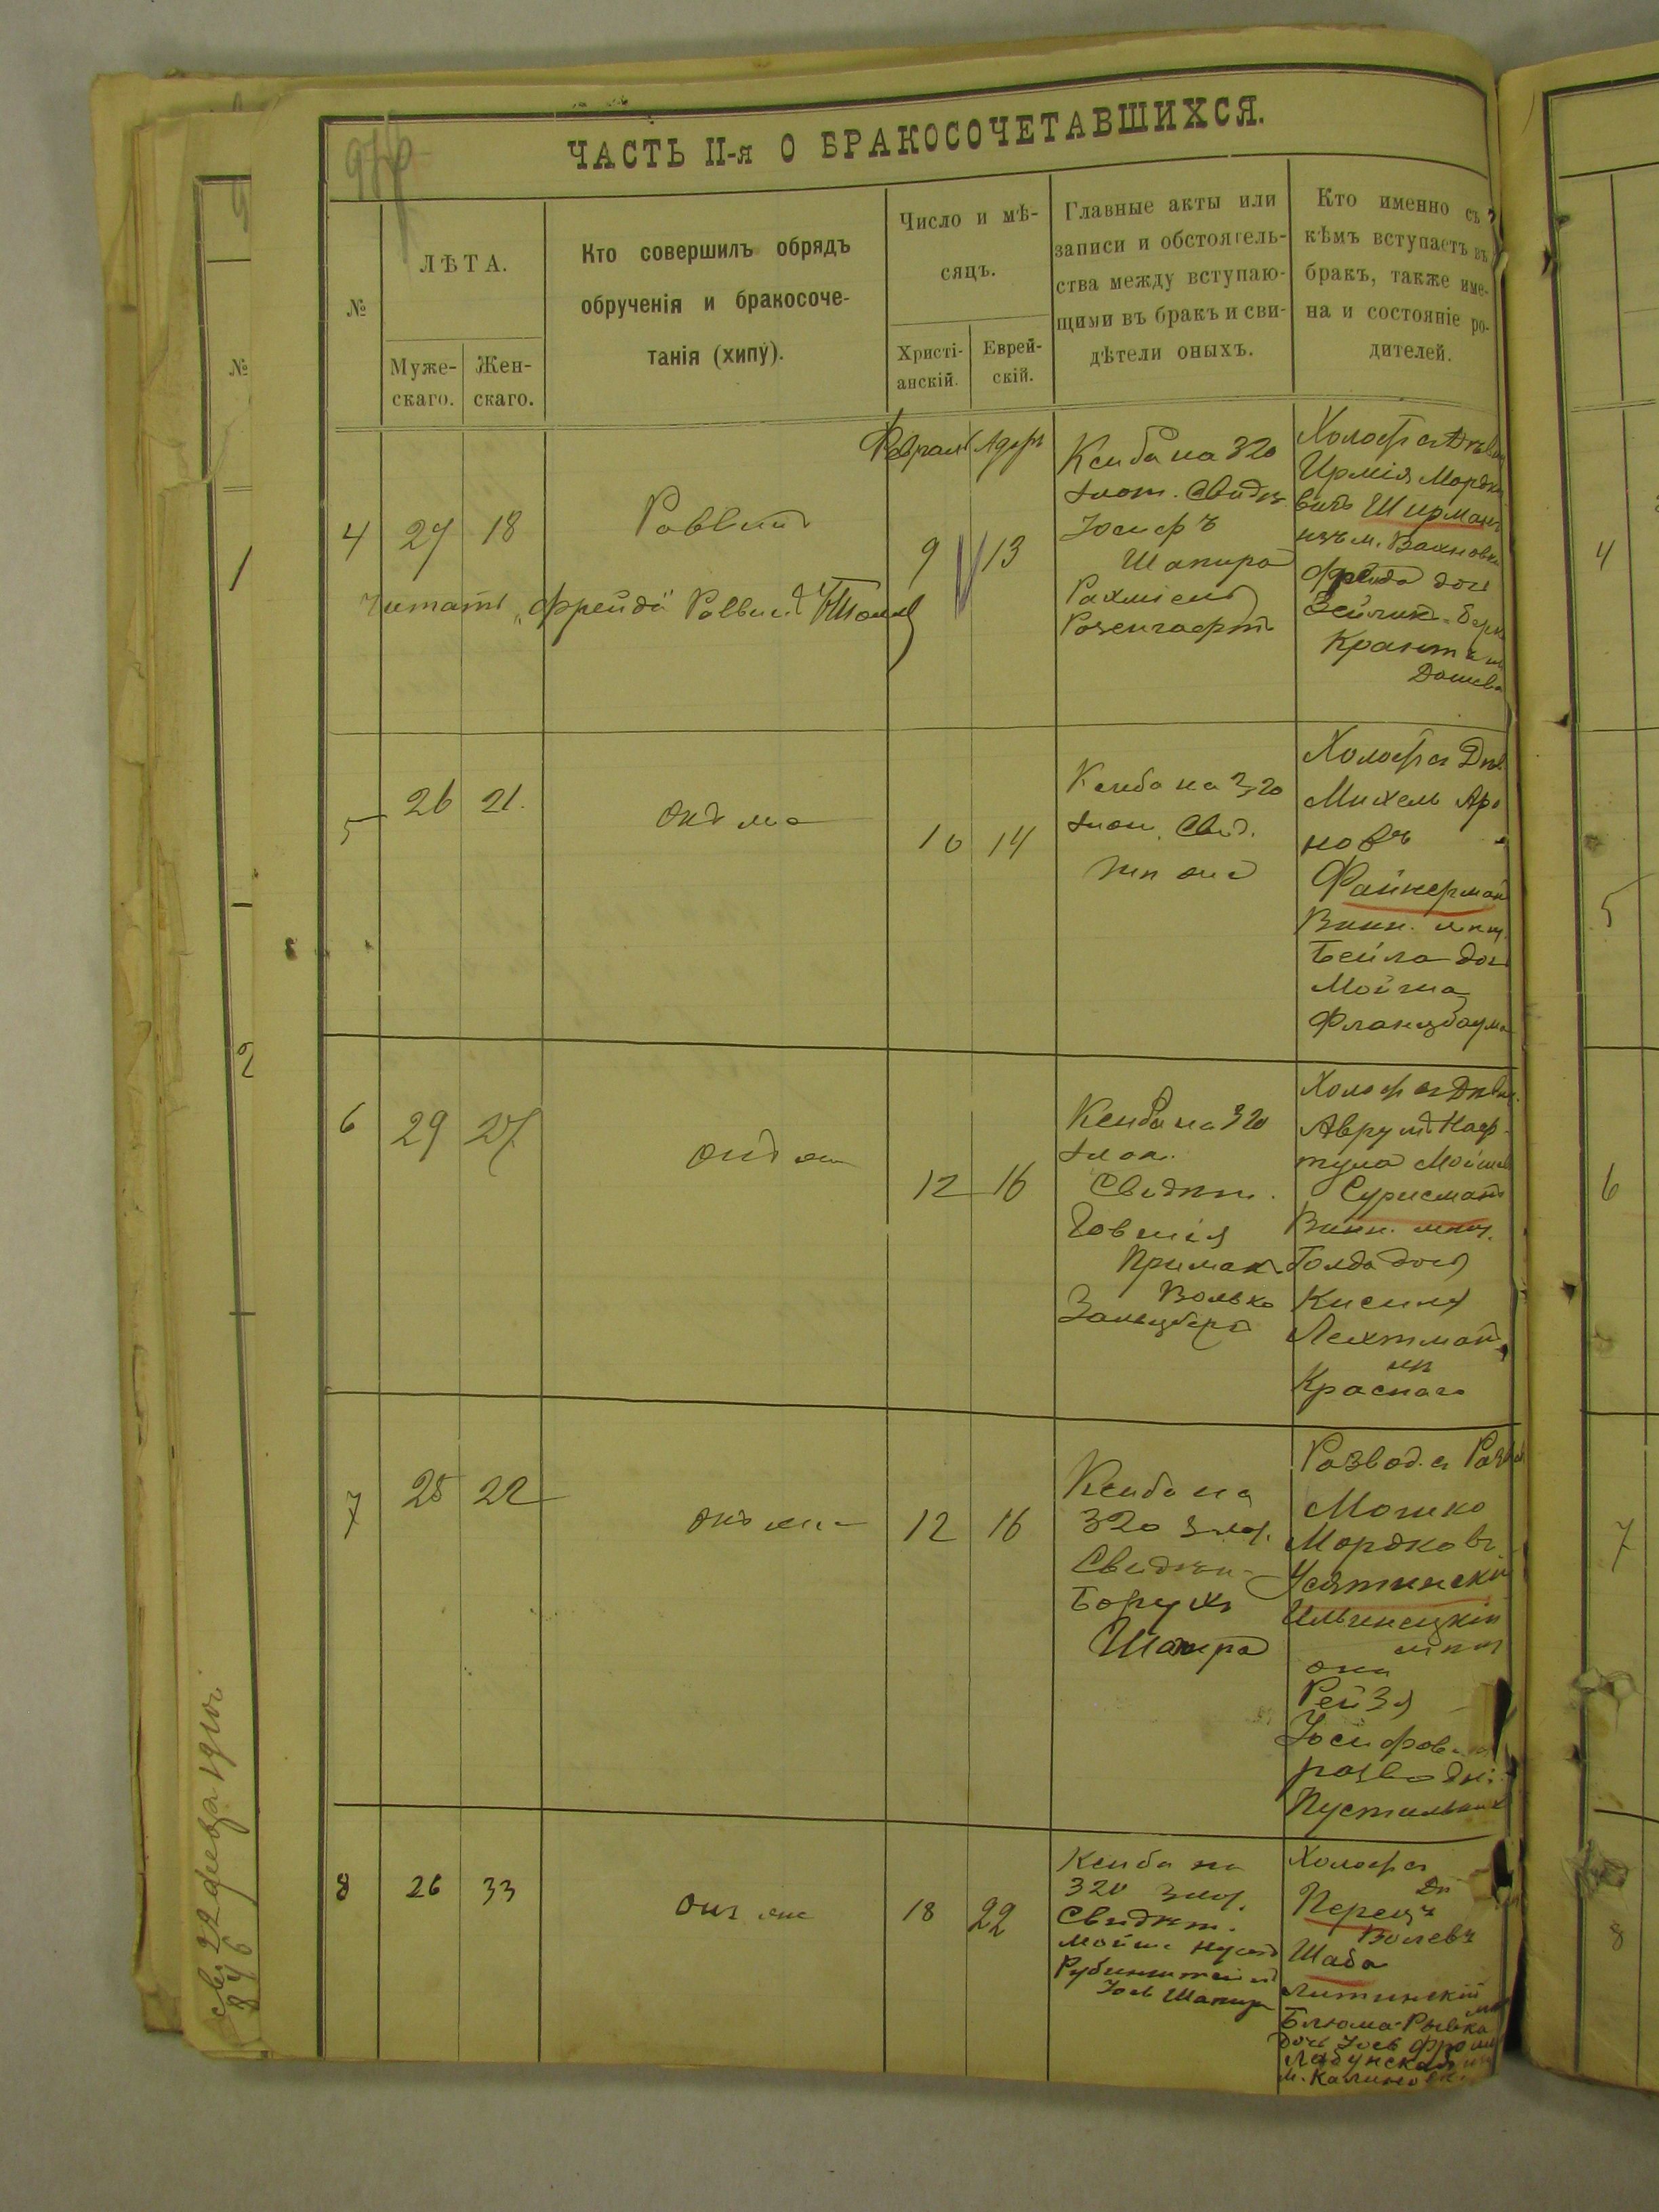 ЧАСТЬ II-я О БРАКОСОЧЕТАВШИХСЯ.
№
ЛѢТА.
Муже-
скаго.
Жен-
скаго.
Кто совершилъ обрядъ
обрученія и бракосоче-
танія (хипу).
Число и мѣ-
сяцъ.
Христі-
анскій.
Еврей-
скій.
Главные акты или
записи и обстоятель-
ства между вступаю-
щими въ бракъ и сви-
дѣтели оныхъ.
Кто именно съ
кѣмъ вступаетъ въ
бракъ, также име-
на и состояніе ро-
дителей.
Февраль Адаръ
4
27
18
Раввинъ
9
13
Ксиба на 320
злот. Свидѣт
Іосифъ
Шапиро
Рахміель
Розенгафтъ
Холост съ Дѣвиц
Ирмія Мордко
вичъ Ширманъ
изъ м. Вахновки
Фрейда дочь
Зейлик-Берк
Крант
Дашева
Читать „Фрейда" Раввинъ
5
26
21.
Онъ же
10
14
Ксиба на 320
злот. Свид.
тѣ же
Холост съ Дѣв.
Михель Аро
новъ
Файнерман
Винн. мѣщ.
Бейла дочь
Мойша
Фланцбаума
6
29
27
Онъ же
12
16
Ксиба на 320
злот.
Свидѣт.
Говшія
Примакъ
Волько
Зальцберг
Холост съ Дѣвиц.
Аврумъ Наф-
тула Мойшев
Сурисманъ
Винн. мѣщ.
Голда дочь
Кисиля
Лехтман
изъ
Краснаго
7
25
22
Онъ же
12
16
Ксиба на
320 злот.
Свидѣт.
Борухъ
Шапиро
Развод. съ Разв
Мошко
Мордковъ
Усятинскій
Ильинецкій
мѣщ
она
Рейзя
Іосифов
развод
Пустильник
8
26
33
Онъ же
18
22
Ксиба на
320 злот.
Свидѣт.
Мойше Нусин
Рубинштейн
Іось Шапиро
Холост съ
Дѣ
Перецъ
Волевъ
Шаба
Литинскій
Блюма-Рывка
дочь Іось Фроим
Лабунская
м. Калиновк
№
1
2
4
5
6
7
8